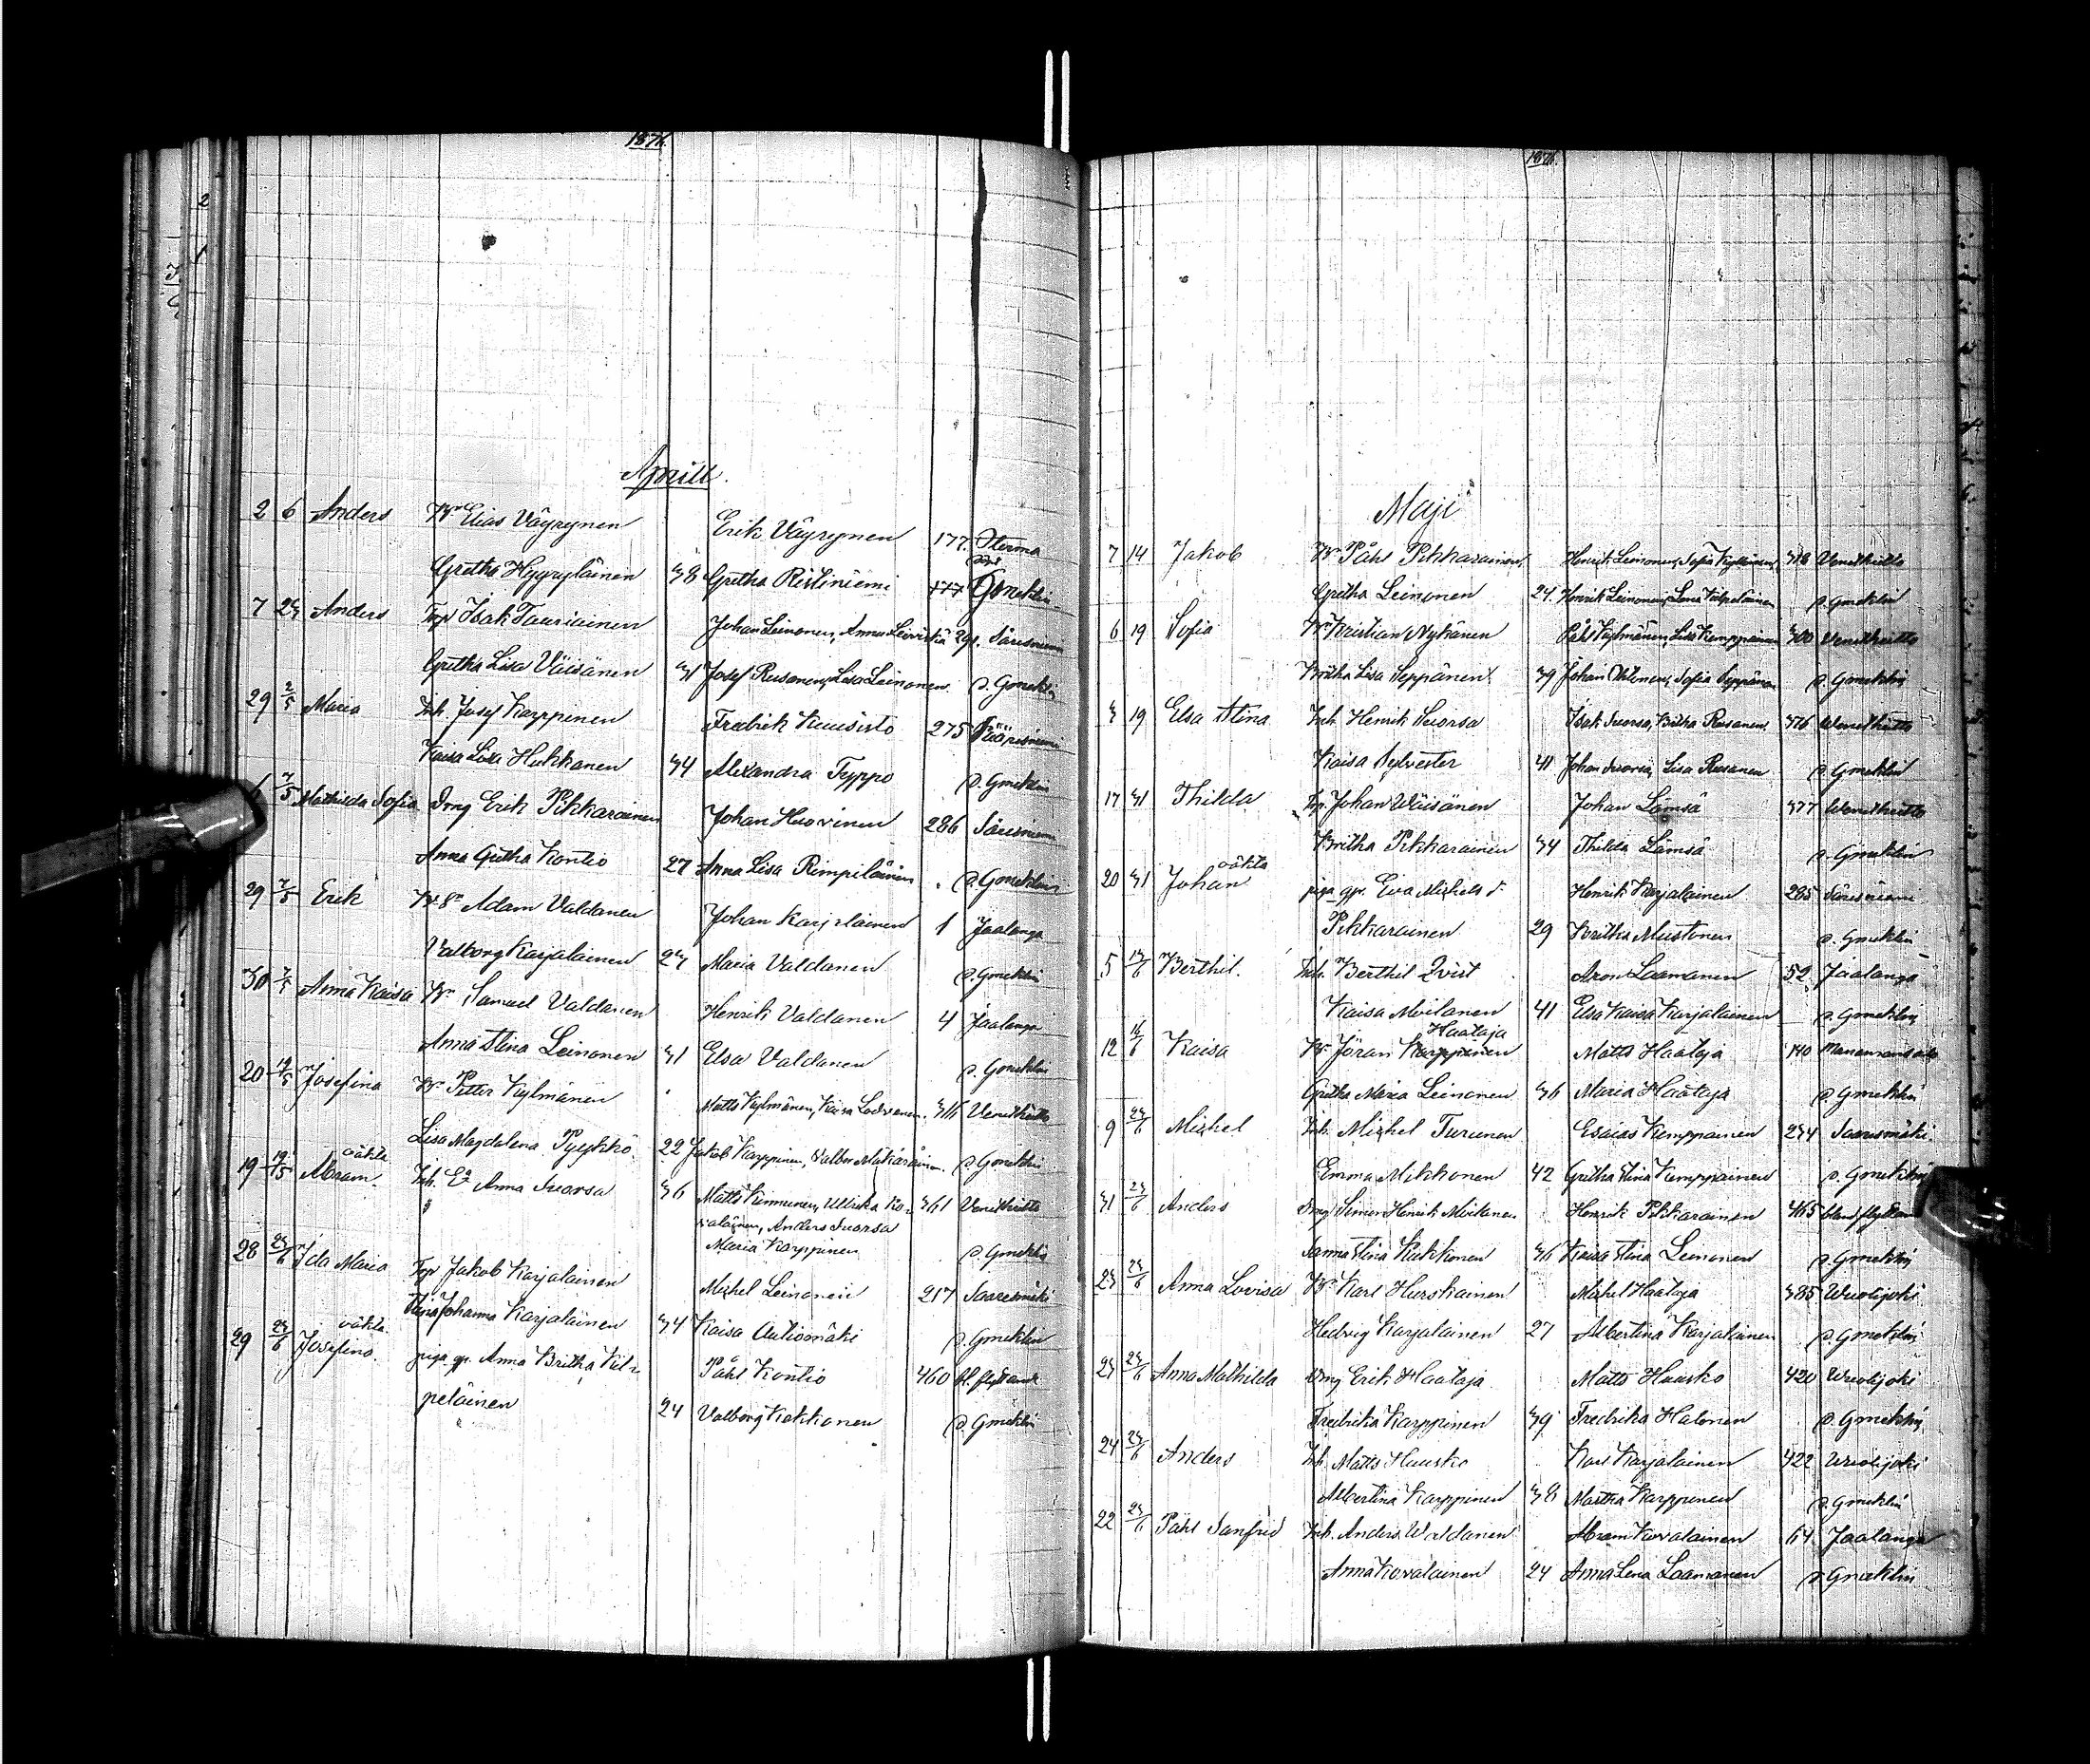 1876.
Aprill.
2 6 Anders Bn Elias Väyrynen Erik Väyrynen 177.
Gretha Hyyryläinen 38 Gretha Ristiniemi Gmeklin
7 23 Anders Torp Isak Tauriainen Johan Leinonen, Anna Leiviskä 291. Säresniemi
Gretha Lisa Väisänen 31 Josef Rusanen, Lisa Leinonen D. Gmeklin
29 2/5 Maria Inh. Josef Karppinen Fredrik Kuusisto 275 Säresniemi
Kaisa Lisa Hukkanen 34 Alexandra Typpo D. Gmeklin
7/5 Mathilda Sofia Drng Erik Pikkarainen Johan Huovinen 286 Säresniemi
Anna Gretha Kontio 27 Anna Lisa Rimpiläinen D. Gmeklin
29 7/5 Erik Adam Valdanen Johan Karjalainen 1 Jaalanga
Valborg Karjalainen 23 Maria Valdanen D. Gmeklin
30 7/5 Anna Kaisa Bn Samuel Valdanen Henrik Valdanen 4 Jaalanga
Anna Stina Leinonen 31 Elsa Valdanen D. Gmeklin
20 14/5 Josefina Bn Petter Kylmänen Matts Kylmänen, Kaisa 316 Venetheitto
Lisa Magdalena Pyykkö 22 Jakob Karppinen, Valbor D. Gmeklin
oäkta
19 19/5 Abram. Inh. Ea Anna Suorsa 36 Matts Kinnunen, Ulrika Ko- 361 Venetheitto
valainen, Anders Suorsa
Maria Karppinen D. Gmeklin
28 23/6 Ida Maria Torp Jakob Karjalainen Michel Leinonen 217 Saaresmäki
Stina Johanna Karjalainen 34 Kaisa Autiomäki D. Gmeklin
oäkta
29 23/6 Josefina. piga gr. Anna Britha Kil- Påhl Kontio 460 bl. flyttande
peläinen 24 Valborg Kokkonen D. Gmeklin
1876.
Maji
7 14 Jakob Bn Påhl Pikkarainen Henrik Leinonen, Sofia Kylmänen 318 Venetheitto
Gretha Leinonen 24. Henrik Leinonen, Lena Kilpeläinen D. Gmeklin
6 19 Sofia Bn Kristian Nykänen Påhl Kylmänen, Lisa Kemppainen 300 Venetheitto
Britha Lisa Seppänen 39 Johan Ahtonen, Sofia Seppänen D. Gmeklin
3 19 Elsa Stina Inh. Henrik Suorsa Isak Suorsa, Britha Rusanen 376 Wenetheitto
Kaisa Sylvester 41 Johan Suorsa, Lisa Rusanen D. Gmeklin
17 31 Thilda Torp. Johan Wäisänen Johan Lämsä 377 Wenetheitto
Britha Pikkarainen 34 Thilda Lämsä D. Gmeklin
oäkta
20 31 Johan piga gr. Eva Michels d. Henrik Karjalainen 285 Säresniemi
Pikkarainen 29 Britha Mustonen D. Gmeklin
5 13/6 Berthil. Inh. Berthil Qvist Aron Laamanen 52 Jaalanga
Kaisa Moilanen 41 Elsa Kaisa Karjalainen D. Gmeklin
Haataja
12 16/6 Kaisa Bn Jöran Karppinen Matts Haataja 140 Manamansalo
Gretha Maria Leinonen 36 Maria Haataja D. Gmeklin
9 23/6 Michel Inh. Michel Turunen Esaias Kemppainen 234 Saaresmäki
Emma Mikkonen 42 Gretha Stina Kemppainen D. Gmeklin
31 23/6 Anders Drng Simon Henrik Moilanen Henrik Pikkarainen 465 bland flyttan
Sanna Stina Kukkonen 36 Kaisa Stina Leinonen D. Gmeklin
23 23/6 Anna Lovisa Bn Karl Hurskainen Michel Haataja 385 Wuolijoki
Hedvig Karjalainen 27 Albertina Karjalainen D. Gmeklin
23 23/6 Anna Mathilda Drng Erik Haataja Matts Huusko 420 Wuolijoki
Fredrika Karppinen 39 Fredrika Halonen D. Gmeklin
24 23/6 Anders Inh. Matts Huusko Karl Karjalainen 422 Wuolijoki
Albertina Karppinen 38 Martha Karppinen D. Gmeklin
22 23/6 Påhl Sanfrid Inh. Anders Waldanen Abram Kovalainen 64 Jaalanga
Anna Kovalainen 24 Anna Lena Laamanen D. Gmeklin